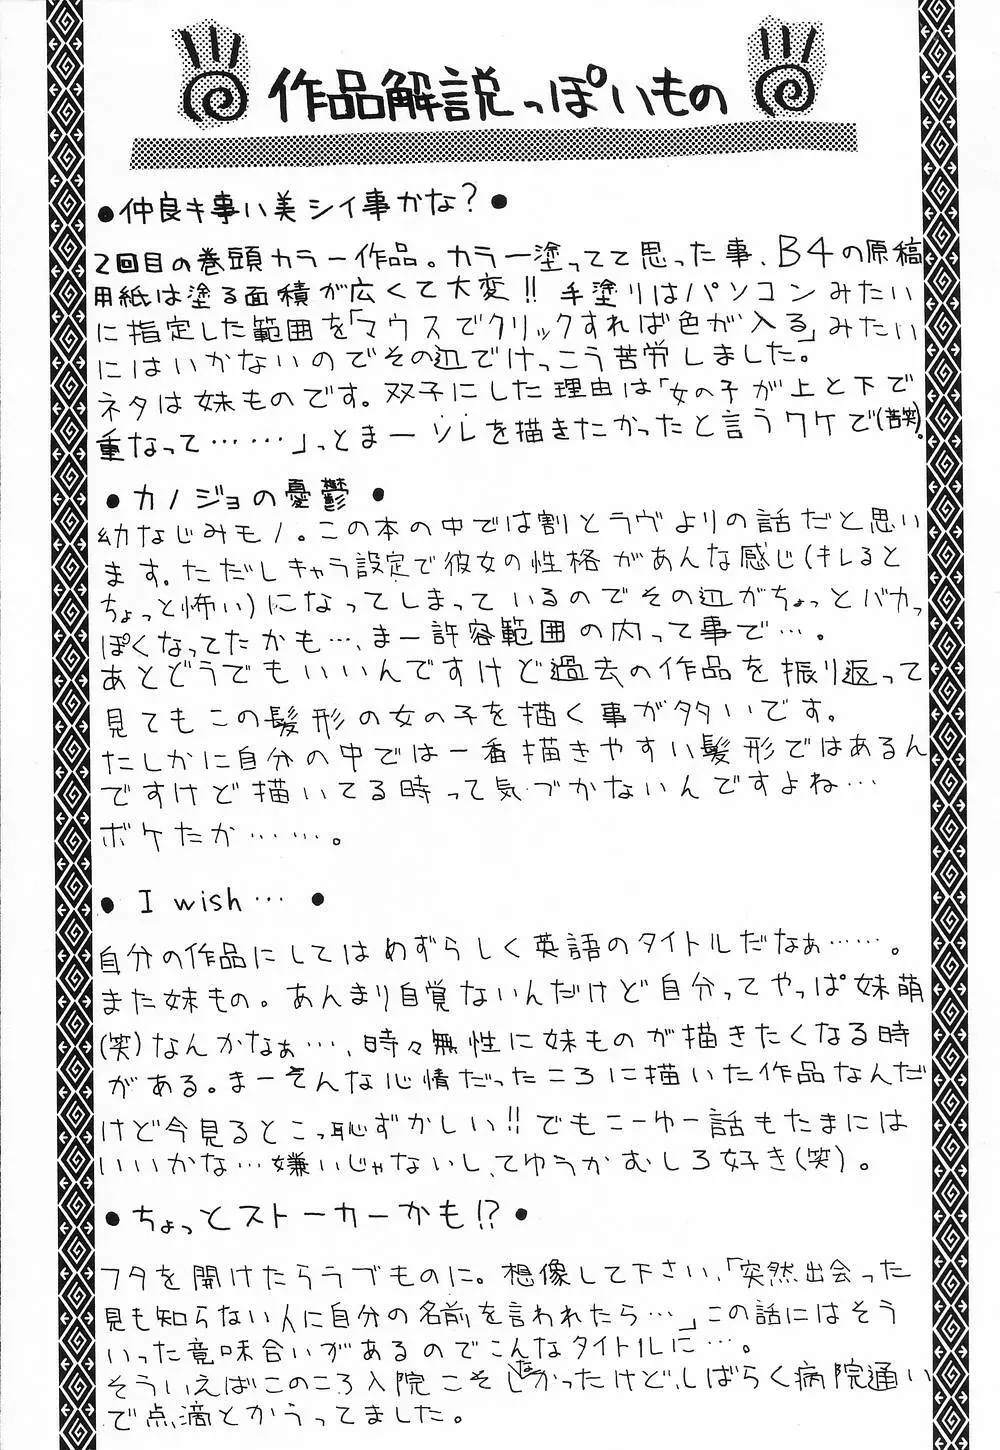 作品解説っぽいもの
●仲良キ事ハ美シイ事かな?●
2回目の巻頭カラー作品。カラー塗ってて思った事、B4の原稿
用紙は塗る面積が広くて大変!! 手塗りはパソコンみたい
に指定した範囲を「マウスでクリックすれば色が入る」みたい
にはいかないのでその辺でけっこう苦労しました。
ネタは妹ものです。双子にした理由は「女の子が上と下で
重なって……」っとまーソレを描きたかったと言うワケで(苦笑)。
●カノジョの憂鬱●
幼なじみモノ。この本の中では割とラヴよりの話だと思い
ます。ただしキャラ設定で彼女の性格があんな感じ(キレると
ちょっと怖い)になってしまっているのでその辺がちょっとバカっ
ぽくなってたかも…、まー許容範囲の内って事で…。
あとどうでもいいんですけど過去の作品を振り返って
見てもこの髪形の女の子を描く事が多いです。
たしかに自分の中では一番描きやすい髪形ではあるん
ですけど描いてる時って気づかないんですよね…
ボケたか……。
● I wish… ●
自分の作品にしてはめずらしく英語のタイトルだなぁ……。
また妹もの。あんまり自覚ないんだけど自分ってやっぱ妹萌
(笑)なんかなぁ…、時々無性に妹ものが描きたくなる時
がある。まーそんな心情だったころに描いた作品なんだ
けど今見るとこっ恥ずかしい!!でもこーゆー話もたまには
いいかな…嫌いじゃないし、てゆうかむしろ好き(笑)。
●ちょっとストーカーかも!?●
フタを開けたらラブものに。想像して下さい、「突然出会った
見も知らない人に自分の名前を言われたら…」この話にはそう
いった意味合いがあるのでこんなタイトルに…。
そういえばこのころ入院こそしなかったけど、しばらく病院通い
で点滴とかうってました。